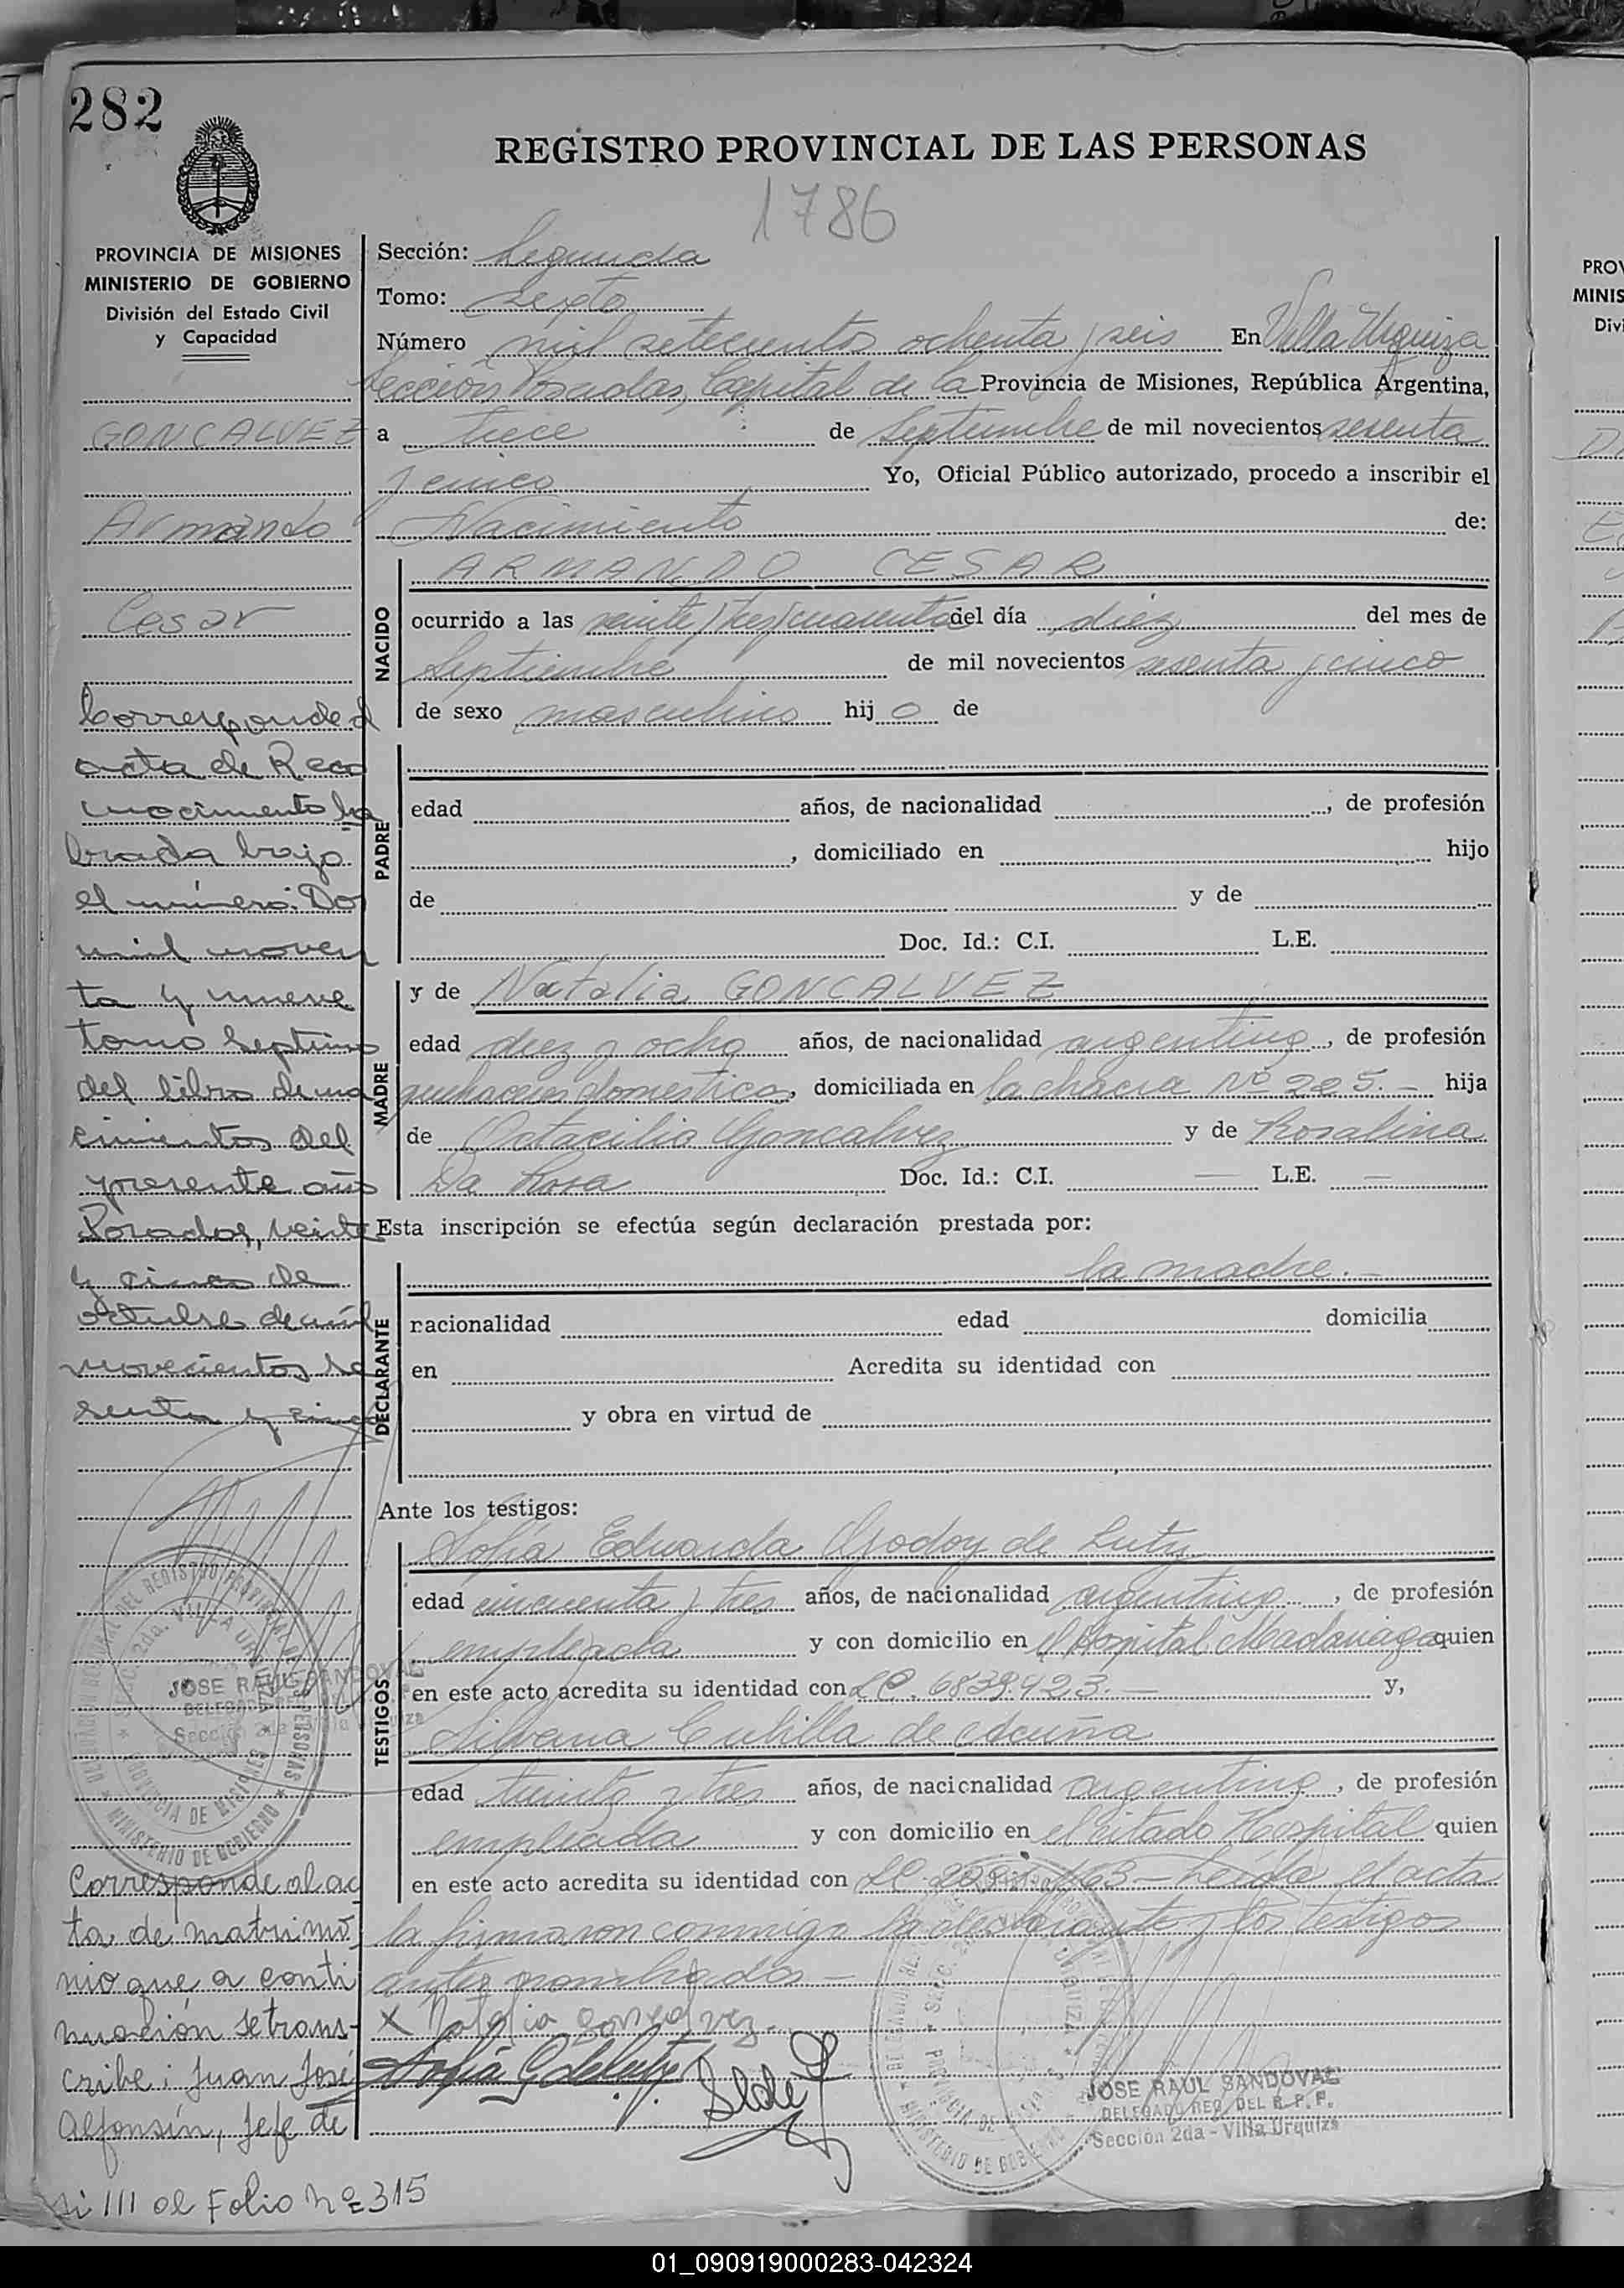 282
REGISTRO PROVINCIAL DE LAS PERSONAS
1786
PROVINCIA DE MISIONES
MINISTERIO DE GOBIERNO
División del Estado Civil
y Capacidad
GONCALVEZ
Armando
Cesar
Corresponde al
acta de Reco
nocimiento la
brada bajo
el número: Dos
mil noven
ta y nueve
tomo Septimo
del libro de na
cimientos del
presente año
Posadas, veinte
y cinco de
octubre de mil
novecientos se
senta y cinco
Corresponde al ac
ta de matrimo
nio que a conti
nuación se trans-
cribe: Juan José
Alfonsín, Jefe de
si III al Folio Nº 315
Sección: Segunda
Tomo: Sexto
Número mil setecientos ochenta y seis En Villa Urquiza
Sección Posadas, Capital de la Provincia de Misiones, República Argentina,
a trece de Septiembre de mil novecientos sesenta
y cinco Yo, Oficial Público autorizado, procedo a inscribir el
Nacimiento de:
NACIDO
ARMANDO CESAR
ocurrido a las veinte y tres y cuarenta del día diez del mes de
Septiembre de mil novecientos sesenta y cinco
de sexo masculino hijo de
PADRE
edad años, de nacionalidad , de profesión
, domiciliado en hijo
de y de
Doc. Id.: C.I. L.E.
MADRE
y de Natalia GONCALVEZ
edad diez y ocho años, de nacionalidad argentina, de profesión
quehaceres domesticos, domiciliada en la chacra Nº 225.- hija
de Octacilio Goncalvez y de Rosalina
Da Rosa Doc. Id.: C.I. — L.E. —
Esta inscripción se efectúa según declaración prestada por:
DECLARANTE
la madre.-
nacionalidad edad domicilia
en Acredita su identidad con
y obra en virtud de
Ante los testigos:
TESTIGOS
Sofía Eduarda Godoy de Lutz
edad cincuenta y tres años, de nacionalidad argentina, de profesión
empleada y con domicilio en el Hospital Madariaga quien
en este acto acredita su identidad con LC. 6839.423.- y,
Silvana Cubilla de Acuña
edad treinta y tres años, de nacionalidad argentina, de profesión
empleada y con domicilio en el citado Hospital quien
en este acto acredita su identidad con LC. Leída el acta
la firmaron conmigo la declarante y los testigos
antes nombrados —
x Natalia Goncalvez
Sofía G de Lutz
JOSE RAUL SANDOVAL
DELEGADO REG. DEL R. P. P.
Sección 2da - Villa Urquiza
JOSE RAUL SANDOVAL
PROV
MINIS
Divi
01_090919000283-042324